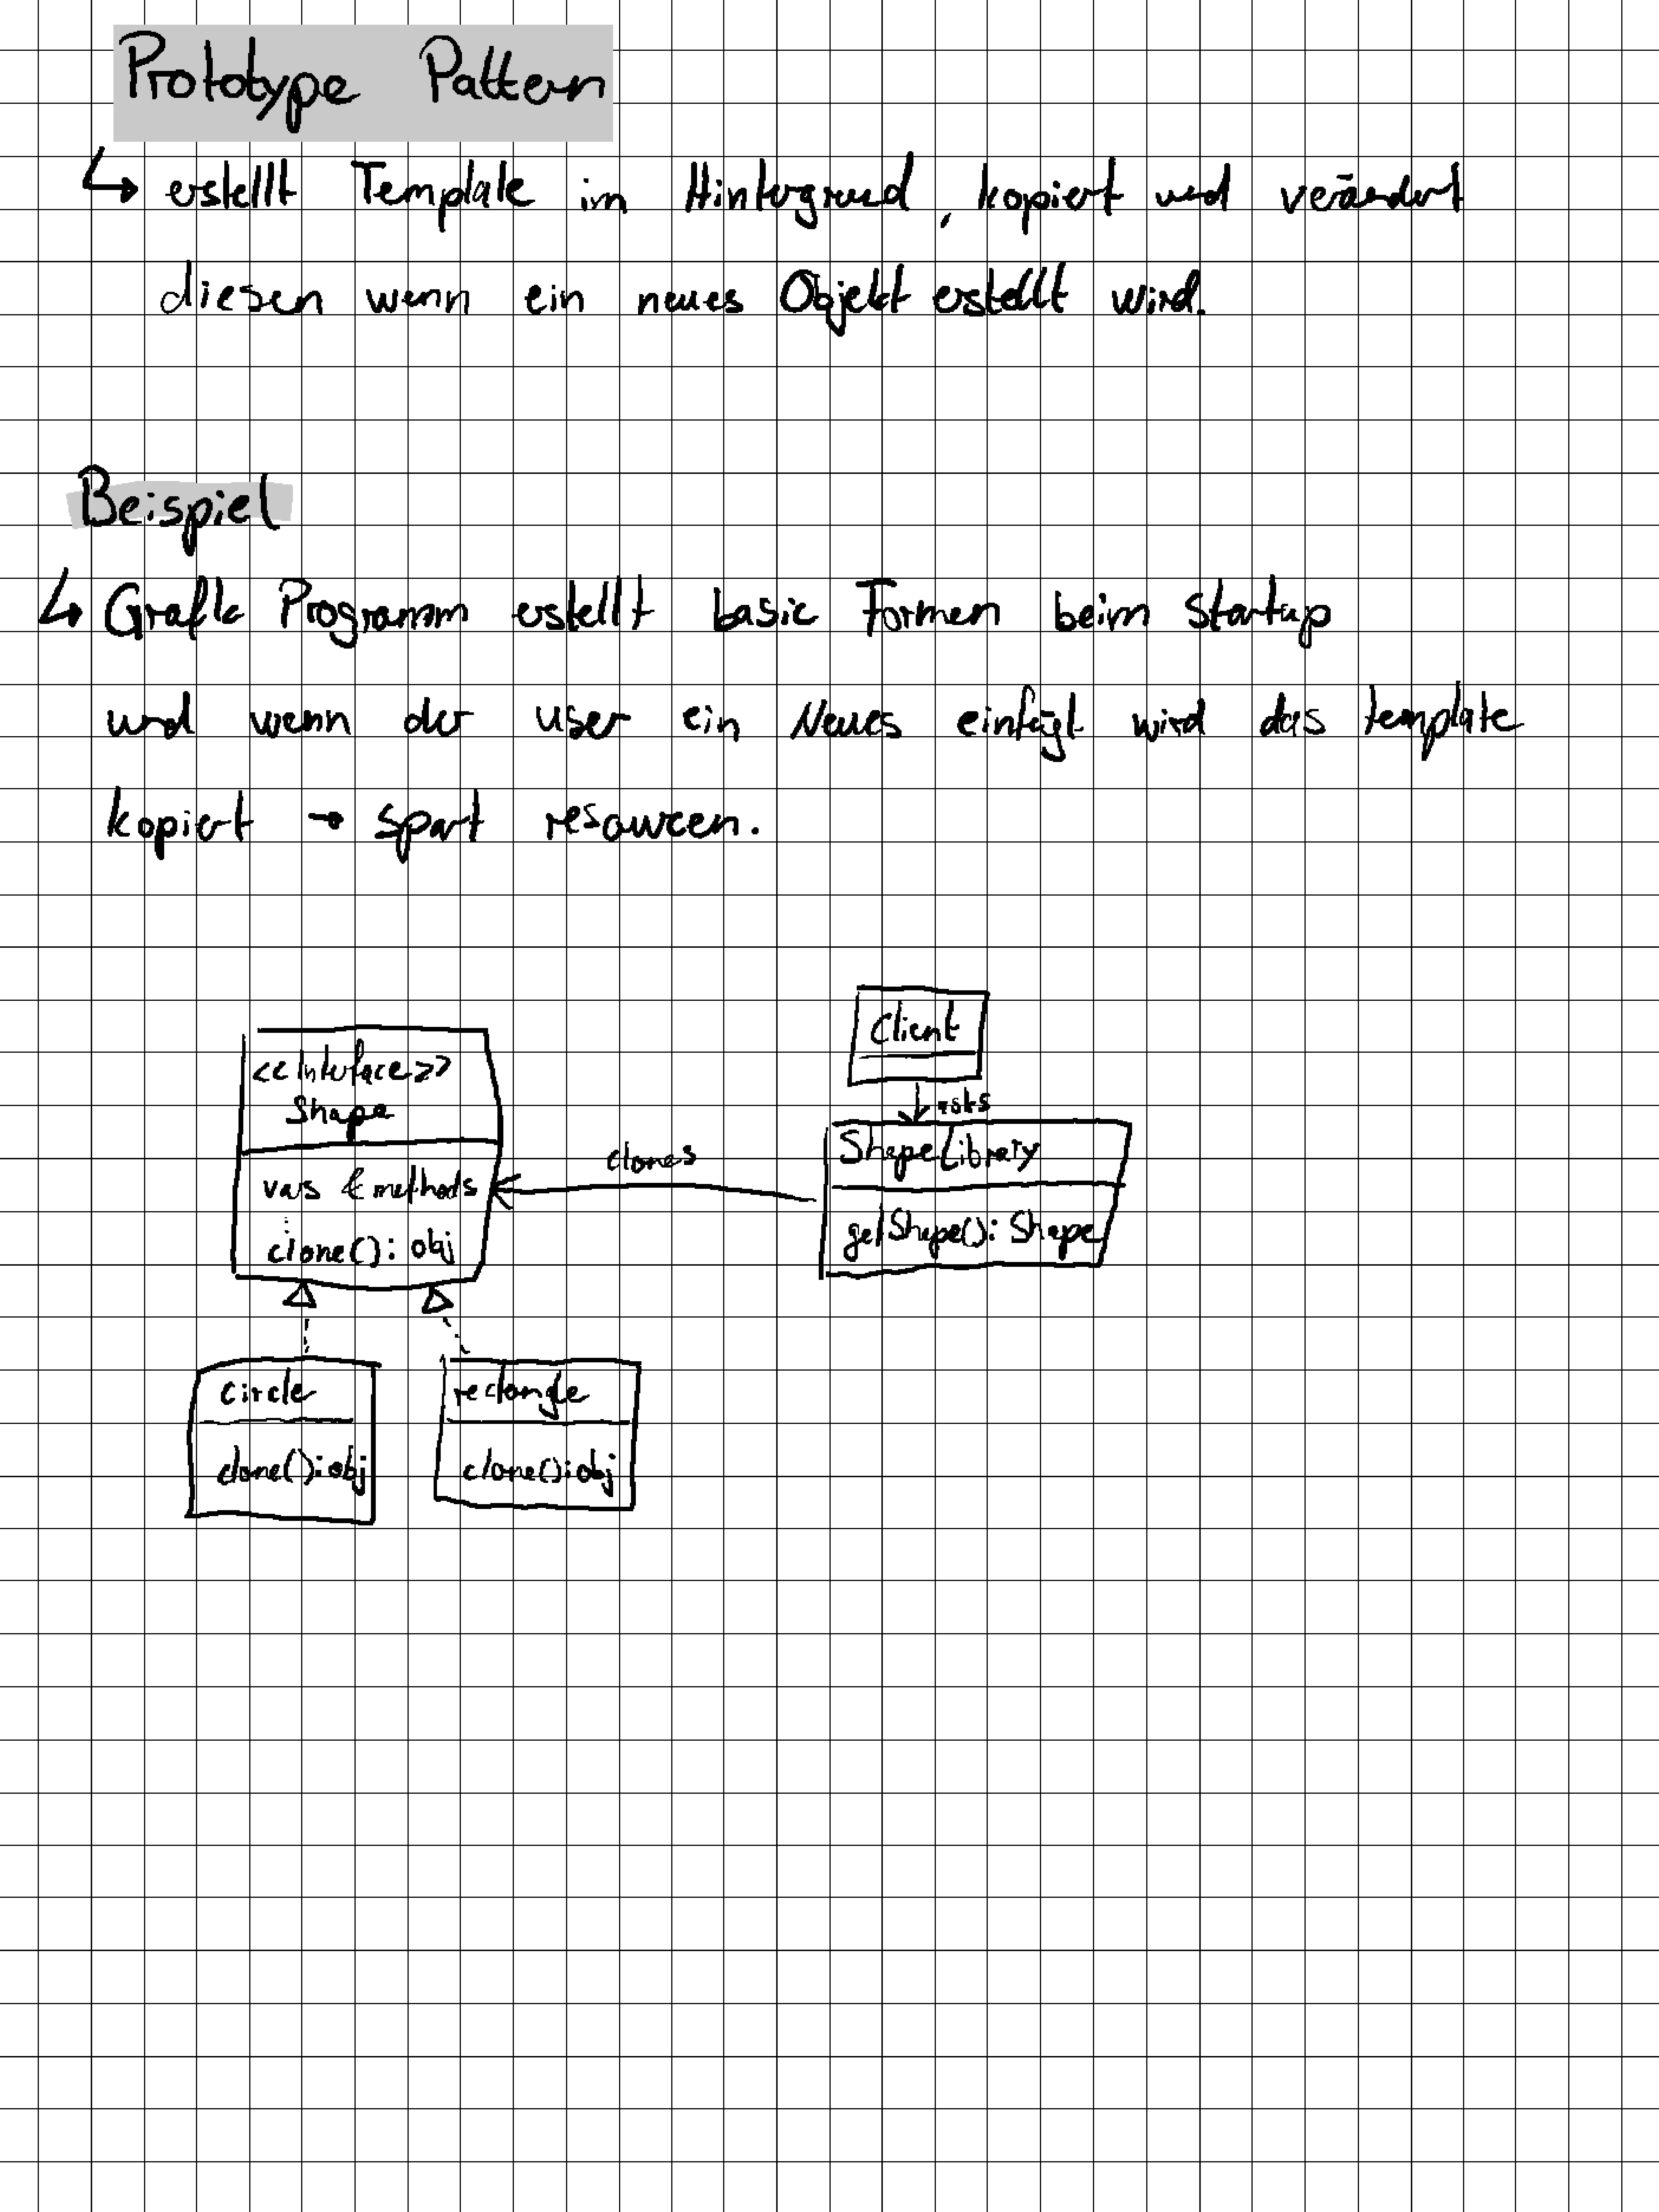 Prototype Pattern
↳ erstellt Template im Hintergrund, kopiert und verändert
diesen wenn ein neues Objekt erstellt wird.
Beispiel
↳ Grafik Programm erstellt basic Formen beim Startup
und wenn der user ein Neues einfügt wird das template
kopiert → spart resourcen.
Client
asks
<<Interface>>
Shape
vars & methods
⋮
clone(): obj
clones
ShapeLibrary
getShape(): Shape
circle
clone(): obj
rectangle
clone(): obj